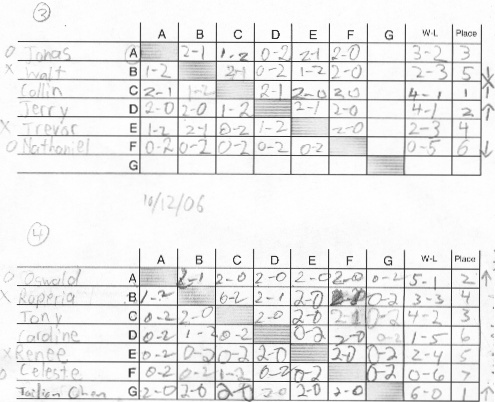 3
A B C D E F G W-L Place
O Jonas A 2-1 1-2 0-2 2-1 2-0 3-2 3
X Walt B 1-2 2-1 0-2 1-2 2-0 2-3 5
Collin C 2-1 1-2 2-1 2-0 2-0 4-1 1 ↑
Jerry D 2-0 2-0 1-2 2-1 2-0 4-1 2 ↑
X Trevor E 1-2 2-1 0-2 1-2 2-0 2-3 4
O Nathaniel F 0-2 0-2 0-2 0-2 0-2 0-5 6 ↓
G
10/12/06
4
A B C D E F G W-L Place
O Oswald A 2-1 2-0 2-0 2-0 2-0 0-2 5-1 2 ↑
X B 1-2 0-2 2-1 2-0 0-2 3-3 4
Tony C 0-2 2-0 2-0 2-0 2-1 0-2 4-2 3
Caroline D 0-2 1-2 0-2 0-2 2-0 0-2 1-5 6
X Renee E 0-2 0-2 0-2 2-0 2-0 0-2 2-4 5
O Celeste F 0-2 0-2 1-2 0-2 0-2 0-2 0-6 7
Chen G 2-0 2-0 2-0 2-0 2-0 2-0 6-0 1 ↑